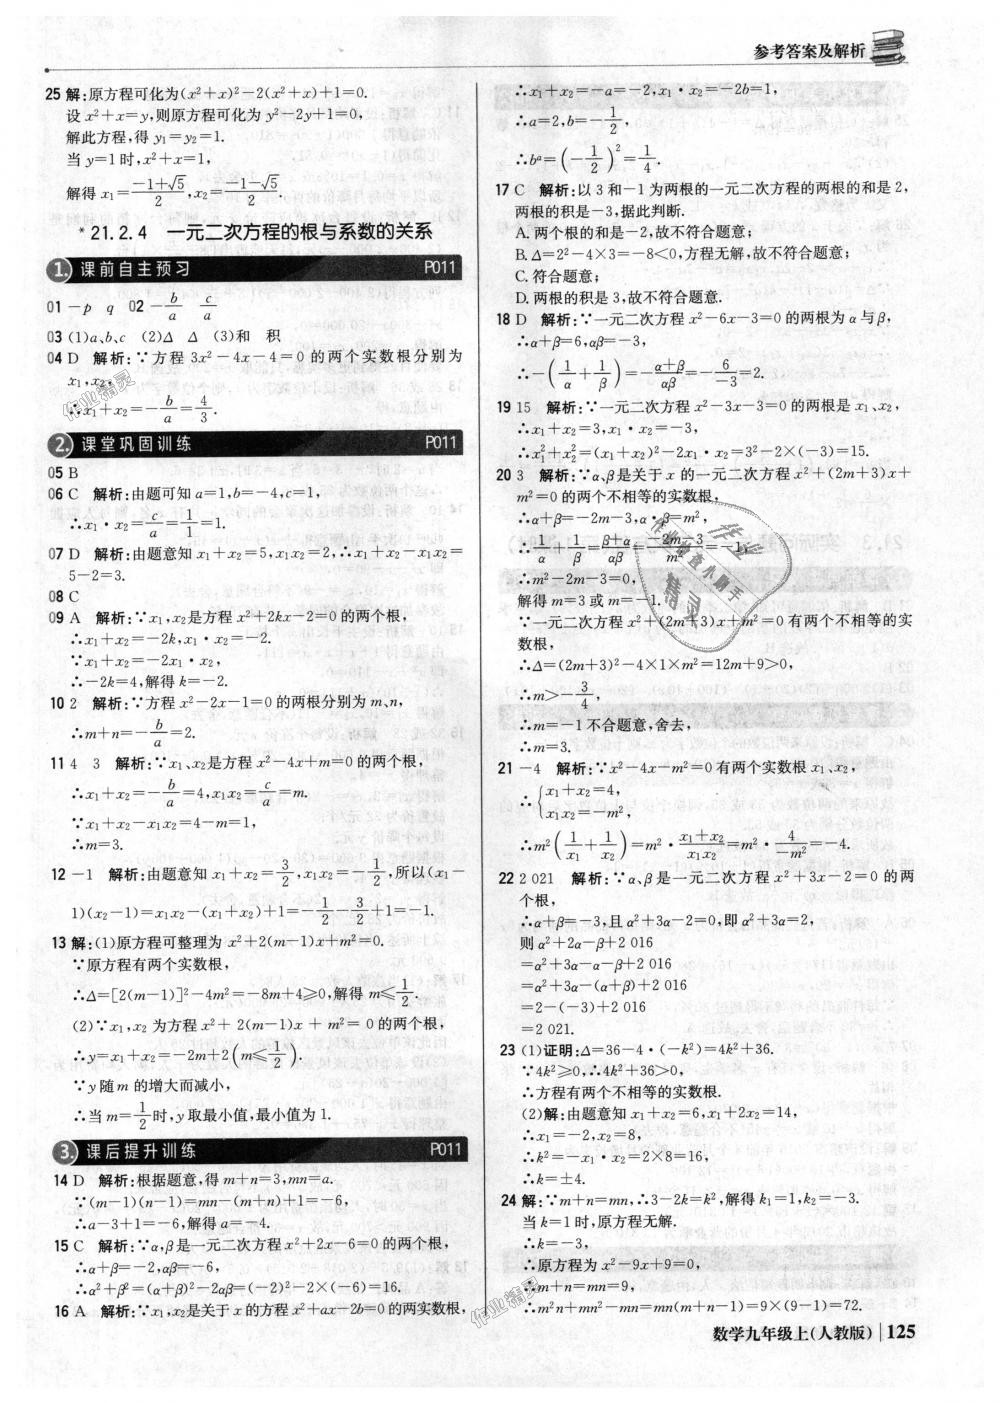 参考答案及解析
25 解:原方程可化为(x²+x)²-2(x²+x)+1=0.
设 x²+x=y,则原方程可化为 y²-2y+1=0,
解此方程,得 y₁=y₂=1.
当 y=1 时,x²+x=1,
解得 x₁=(-1+√5)/2,x₂=(-1-√5)/2.
*21.2.4 一元二次方程的根与系数的关系
1. 课前自主预习 P011
01 -p q 02 -b/a c/a
03 (1)a、b、c (2)Δ Δ (3)和 积
04 D 解析:∵方程 3x²-4x-4=0 的两个实数根分别为
x₁,x₂,
∴x₁+x₂=-b/a=4/3.
2. 课堂巩固训练 P011
05 B
06 C 解析:由题可知 a=1,b=-4,c=1,
∴x₁·x₂=c/a=1/1=1.
07 D 解析:由题意知 x₁+x₂=5,x₁x₂=2,∴x₁+x₂-x₁x₂=
5-2=3.
08 C
09 A 解析:∵x₁,x₂是方程 x²+2kx-2=0 的两个根,
∴x₁+x₂=-2k,x₁·x₂=-2.
∵x₁+x₂=-2x₁·x₂,
∴-2k=4,解得 k=-2.
10 2 解析:∵方程 x²-2x-1=0 的两根分别为 m、n,
∴m+n=-b/a=2.
11 4 3 解析:∵x₁、x₂是方程 x²-4x+m=0 的两个根,
∴x₁+x₂=-b/a=4,x₁x₂=c/a=m.
∵x₁+x₂-x₁x₂=4-m=1,
∴m=3.
12 -1 解析:由题意知 x₁+x₂=3/2,x₁x₂=-1/2,所以(x₁-
1)(x₂-1)=x₁x₂-(x₁+x₂)+1=-1/2-3/2+1=-1.
13 解:(1)原方程可整理为 x²+2(m-1)x+m²=0.
∵原方程有两个实数根,
∴Δ=[2(m-1)]²-4m²=-8m+4≥0,解得 m≤1/2.
(2)∵x₁,x₂ 为方程 x²+2(m-1)x+m²=0 的两个根,
∴y=x₁+x₂=-2m+2(m≤1/2).
∵y 随 m 的增大而减小,
∴当 m=1/2时,y 取最小值,最小值为 1.
3. 课后提升训练 P011
14 D 解析:根据题意,得 m+n=3,mn=a.
∵(m-1)(n-1)=mn-(m+n)+1=-6,
∴a-3+1=-6,解得 a=-4.
15 C 解析:∵α,β是一元二次方程 x²+2x-6=0 的两个根,
∴α+β=-2,αβ=-6,
∴α²+β²=(α+β)²-2αβ=(-2)²-2×(-6)=16.
16 A 解析:∵x₁,x₂是关于 x 的方程 x²+ax-2b=0 的两实数根,
∴x₁+x₂=-a=-2,x₁·x₂=-2b=1,
∴a=2,b=-1/2,
∴bᵃ=(-1/2)²=1/4.
17 C 解析:以 3 和-1 为两根的一元二次方程的两根的和是 2,
两根的积是-3,据此判断.
A. 两个根的和是-2,故不符合题意;
B. Δ=2²-4×3=-8<0,方程无解,故不符合题意;
C. 符合题意;
D. 两根的积是 3,故不符合题意.
18 D 解析:∵一元二次方程 x²-6x-3=0 的两根为 α 与 β,
∴α+β=6,αβ=-3,
∴-(1/α+1/β)=-(α+β)/αβ=-6/-3=2.
19 15 解析:∵一元二次方程 x²-3x-3=0 的两根是 x₁、x₂,
∴x₁+x₂=3,x₁·x₂=-3,
∴x₁²+x₂²=(x₁+x₂)²-2x₁·x₂=3²-2×(-3)=15.
20 3 解析:∵α、β是关于 x 的一元二次方程 x²+(2m+3)x+
m²=0 的两个不相等的实数根,
∴α+β=-2m-3,α·β=m²,
∴1/α+1/β=(β+α)/αβ=(-2m-3)/m²=-1,
∴m²-2m-3=0,
解得 m=3 或 m=-1.
∵一元二次方程 x²+(2m+3)x+m²=0 有两个不相等的实
数根,
∴Δ=(2m+3)²-4×1×m²=12m+9>0,
∴m>-3/4,
∴m=-1 不合题意,舍去,
∴m=3.
21 -4 解析:∵x²-4x-m²=0 有两个实数根 x₁、x₂,
∴{x₁+x₂=4,
x₁x₂=-m²,
∴m²(1/x₁+1/x₂)=m²·(x₁+x₂)/x₁x₂=m²·4/-m²=-4.
22 2 021 解析:∵α、β 是一元二次方程 x²+3x-2=0 的两
个根,
∴α+β=-3,且 α²+3α-2=0,即 α²+3α=2,
则 α²+2α-β+2 016
=α²+3α-α-β+2 016
=α²+3α-(α+β)+2 016
=2-(-3)+2 016
=2 021.
23 (1)证明:Δ=36-4·(-k²)=4k²+36.
∵4k²≥0,∴4k²+36>0,
∴方程有两个不相等的实数根.
(2)解:由题意知 x₁+x₂=6,x₁+2x₂=14,
∴x₁=-2,x₂=8,
∴k²=-x₁·x₂=2×8=16,
∴k=±4.
24 解:∵m+n=mn,∴3-2k=k²,解得 k₁=1,k₂=-3.
当 k=1 时,原方程无解.
∴k=-3,
∴原方程为 x²-9x+9=0,
∴m+n=mn=9,
∴m²n+mn²-mn=mn(m+n-1)=9×(9-1)=72.
数学九年级上(人教版) 125
作业精灵
作业检查小助手
作业
精灵
作业精灵